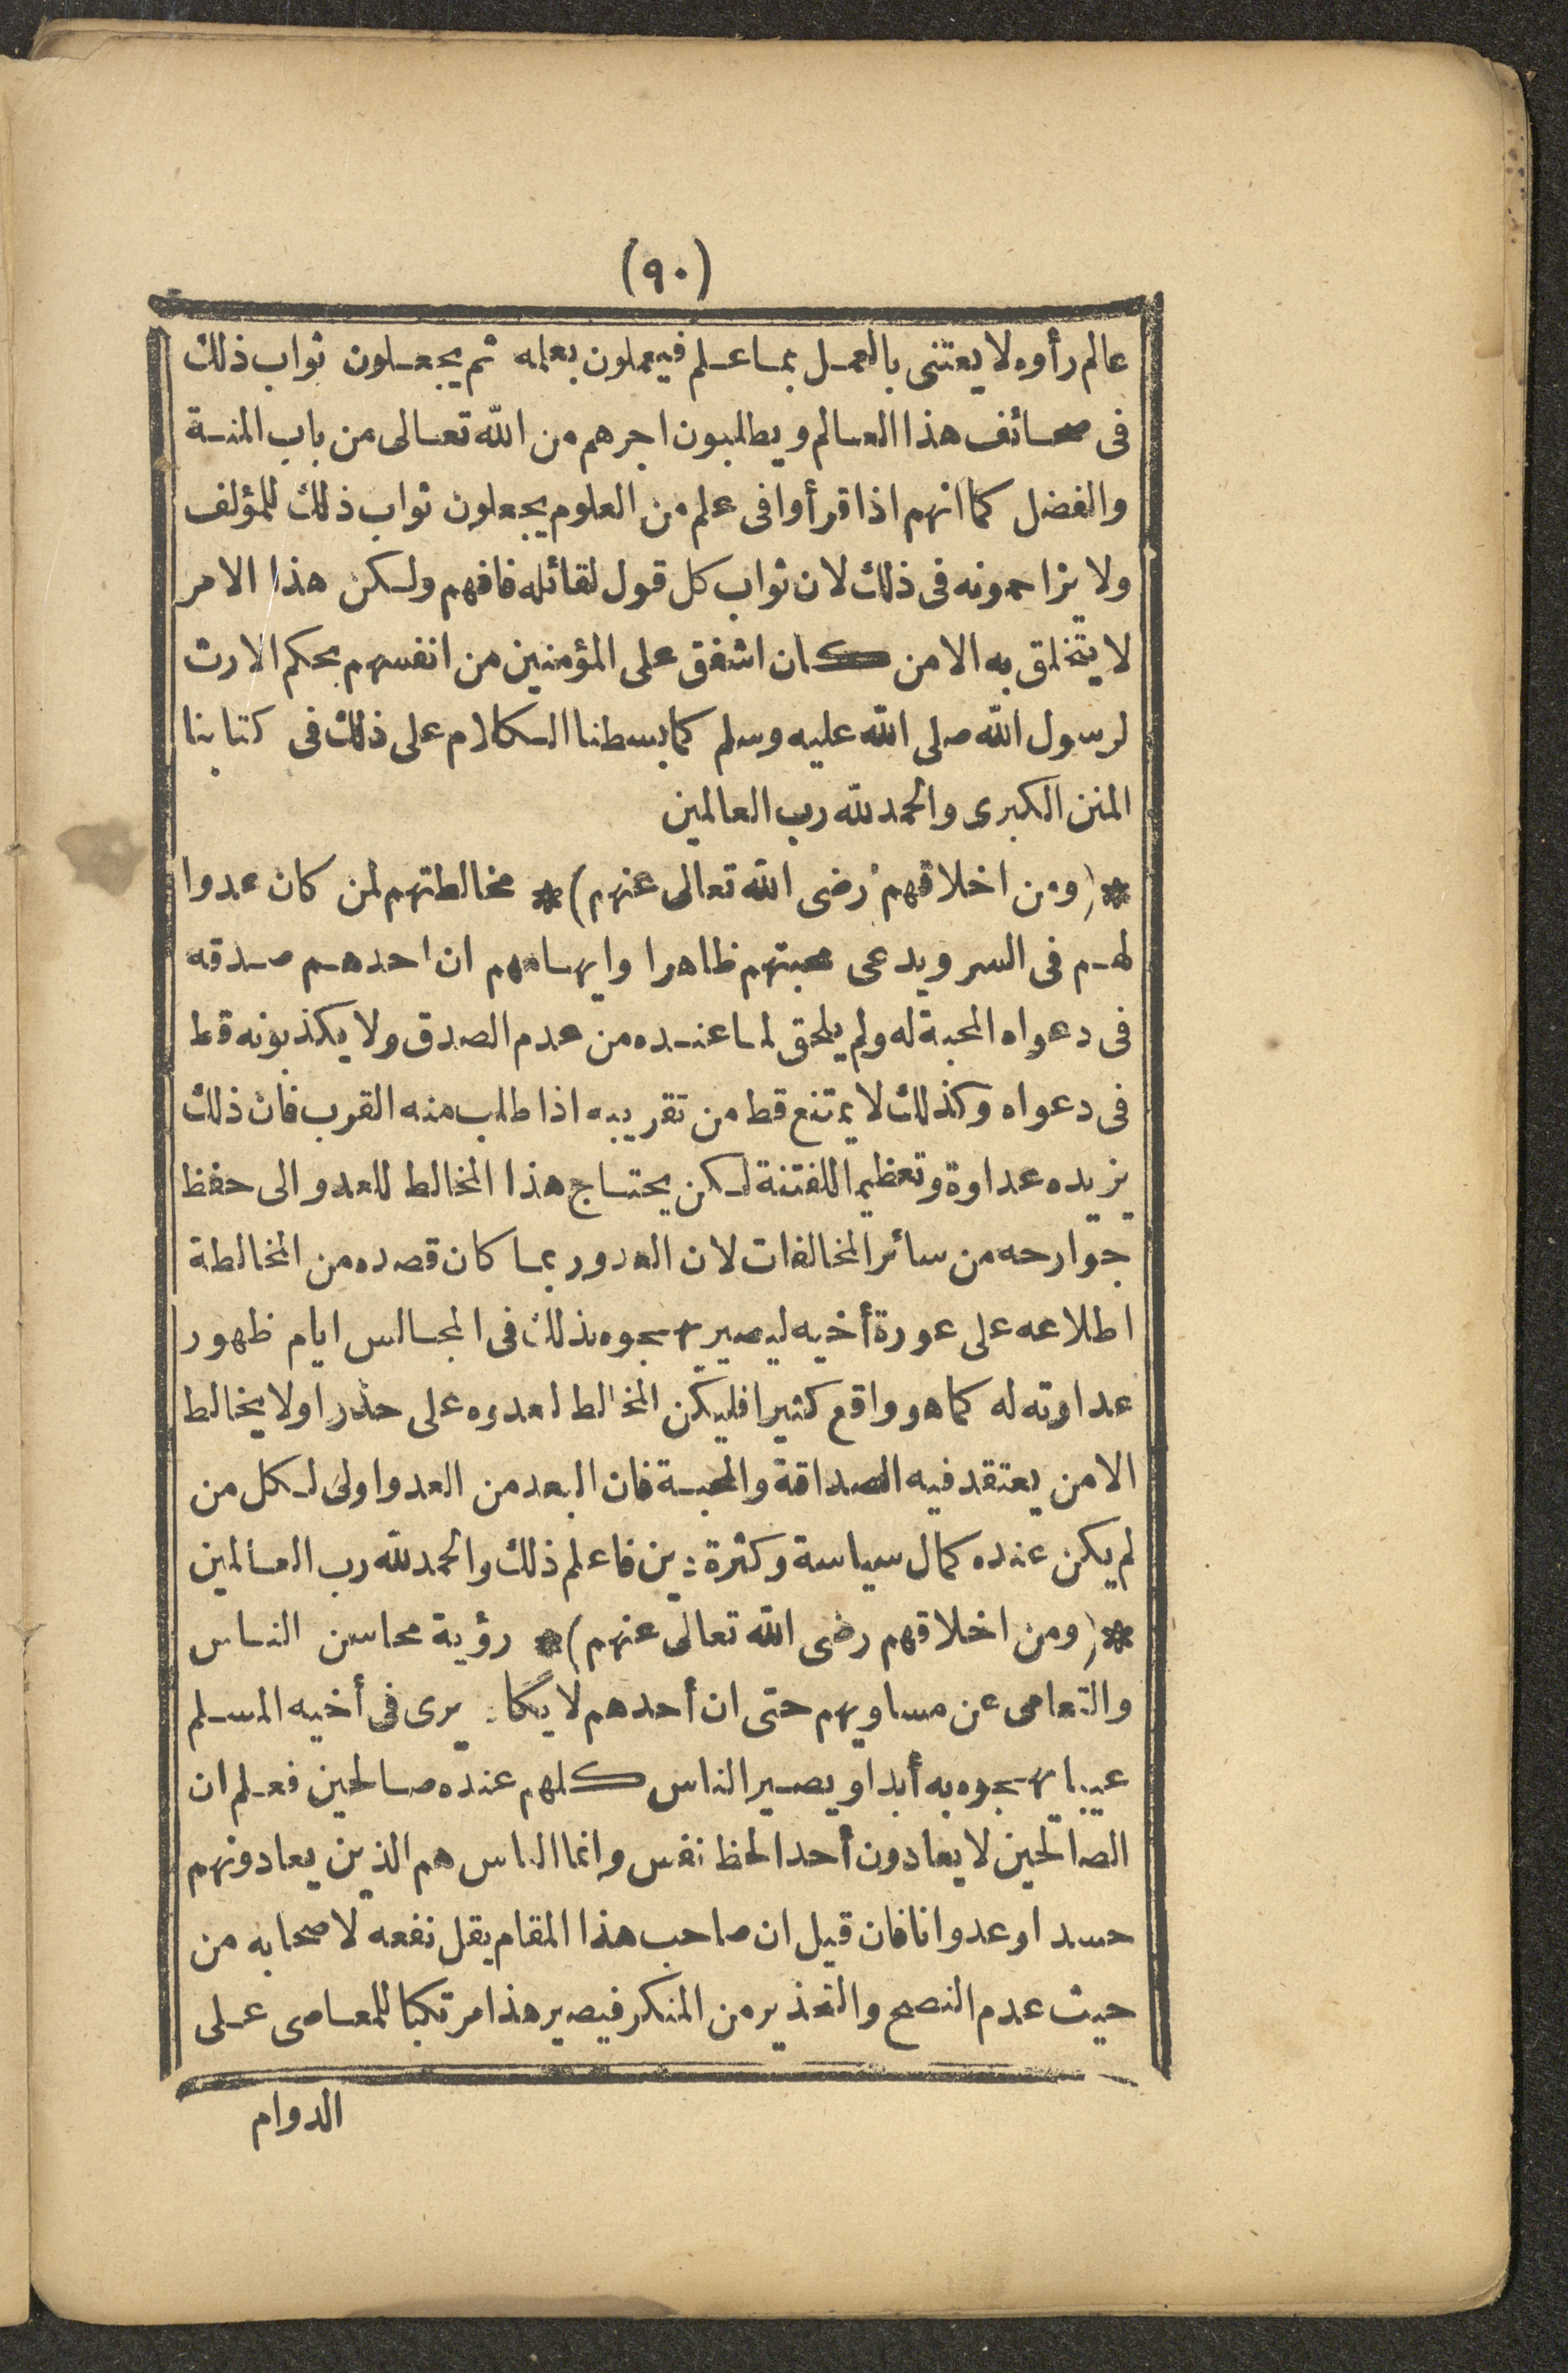 (٩٠)
عالم رأوه لا يعتنى بالعمل بما علم فيعملون بعلمه ثم يجعلون ثواب ذلك
فى صحائف هذا العالم ويطلبون اجرهم من الله تعالى من باب المنة
والفضل كما انهم اذا قرأوا فى علم من العلوم يجعلون ثواب ذلك للمؤلف
ولا يزاحمونه فى ذلك لان ثواب كل قول لقائله فافهم ولكن هذا الامر
لا يتخلق به الا من كان اشفق على المؤمنين من انفسهم بحكم الارث
لرسول الله صلى الله عليه وسلم كما بسطنا الكلام على ذلك فى كتابنا
المنن الكبرى والحمد لله رب العالمين
* (ومن اخلاقهم رضى الله تعالى عنهم) * مخالطتهم لمن كان عدوا
لهم فى السر ويدعى محبتهم ظاهرا وايهامهم ان احدهم صدقه
فى دعواه المحبة له ولم يلحق لما عنده من عدم الصدق ولا يكذبونه قط
فى دعواه وكذلك لا يمتنع قط من تقريبه اذا طلب منه القرب فان ذلك
يزيده عداوة وتعظيما للفتنة لكن يحتاج هذا المخالط للعدو الى حفظ
جوارحه من سائر المخالفات لان العدو ربما كان قصده من المخالطة
اطلاعه على عورة أخيه ليصير يهجوه بذلك فى المجالس ايام ظهور
عداوته له كما هو واقع كثيرا فليكن المخالط لعدوه على حذر اولا يخالط
الا من يعتقد فيه الصداقة والمحبة فان البعد من العدو اولى لكل من
لم يكن عنده كمال سياسة وكثرة دين فاعلم ذلك والحمد لله رب العالمين
* (ومن اخلاقهم رضى الله تعالى عنهم) * رؤية محاسن الناس
والتعامى عن مساويهم حتى ان أحدهم لا يكاد يرى فى أخيه المسلم
عيبا يهجوه به أبدا ويصير الناس كلهم عنده صالحين فعلم ان
الصالحين لا يعادون أحدا لحظ نفس وانما الناس هم الذين يعادونهم
حسدا وعدوانا فان قيل ان صاحب هذا المقام يقل نفعه لاصحابه من
حيث عدم النصح والتحذير من المنكر فيصير هذا مرتكبا للمعاصى على
الدوام